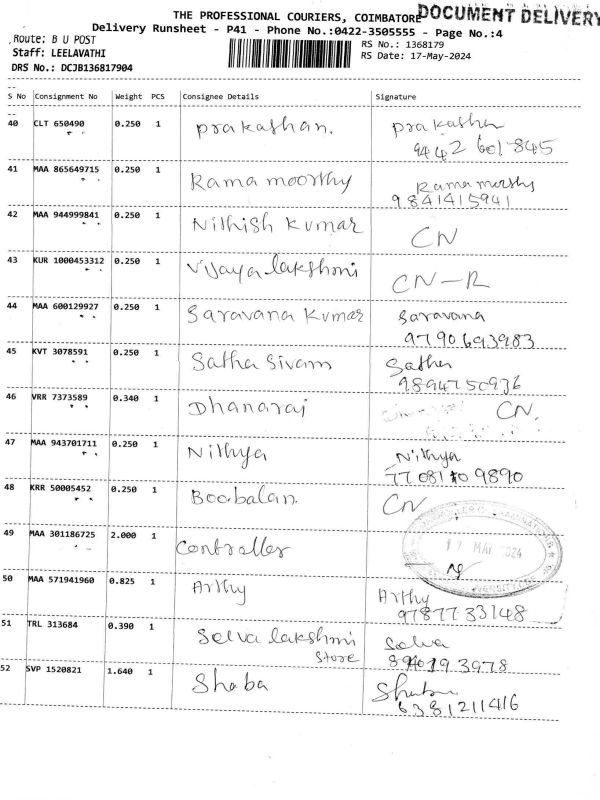 THE PROFESSIONAL COURIERS, COIMBATORE
DOCUMENT DELIVERY
Delivery Runsheet - P41 - Phone No.:0422-3505555 - Page No.:4
Route: B U POST
RS No.: 1368179
Staff: LEELAVATHI
RS Date: 17-May-2024
DRS No.: DCJB136817904
S No Consignment No Weight PCS Consignee Details Signature
40 CLT 650490 0.250 1 prakashan. prakasha
9442 601845
41 MAA 865649715 0.250 1 Rama moorthy Rama moorthy
9841415941
42 MAA 944999841 0.250 1 Nithish kumar CN
43 KUR 1000453312 0.250 1 Vijaya lakshmi CN-R
44 MAA 600129927 0.250 1 Saravana kumar Saravana
9790693983
45 KVT 3078591 0.250 1 Satha Sivam Satha
9894750936
46 VRR 7373589 0.340 1 Dhanaraj CN.
47 MAA 943701711 0.250 1 Nithya Nithya
9890
48 KRR 50005452 0.250 1 Boobalan. CN
49 MAA 301186725 2.000 1 Controller
17 MAY 2024
50 MAA 571941960 0.825 1 Arthy Arthy
9787733148
51 TRL 313684 0.390 1 Selva lakshmi Selva
Store 3978
52 SVP 1520821 1.640 1 Shoba
6381211416